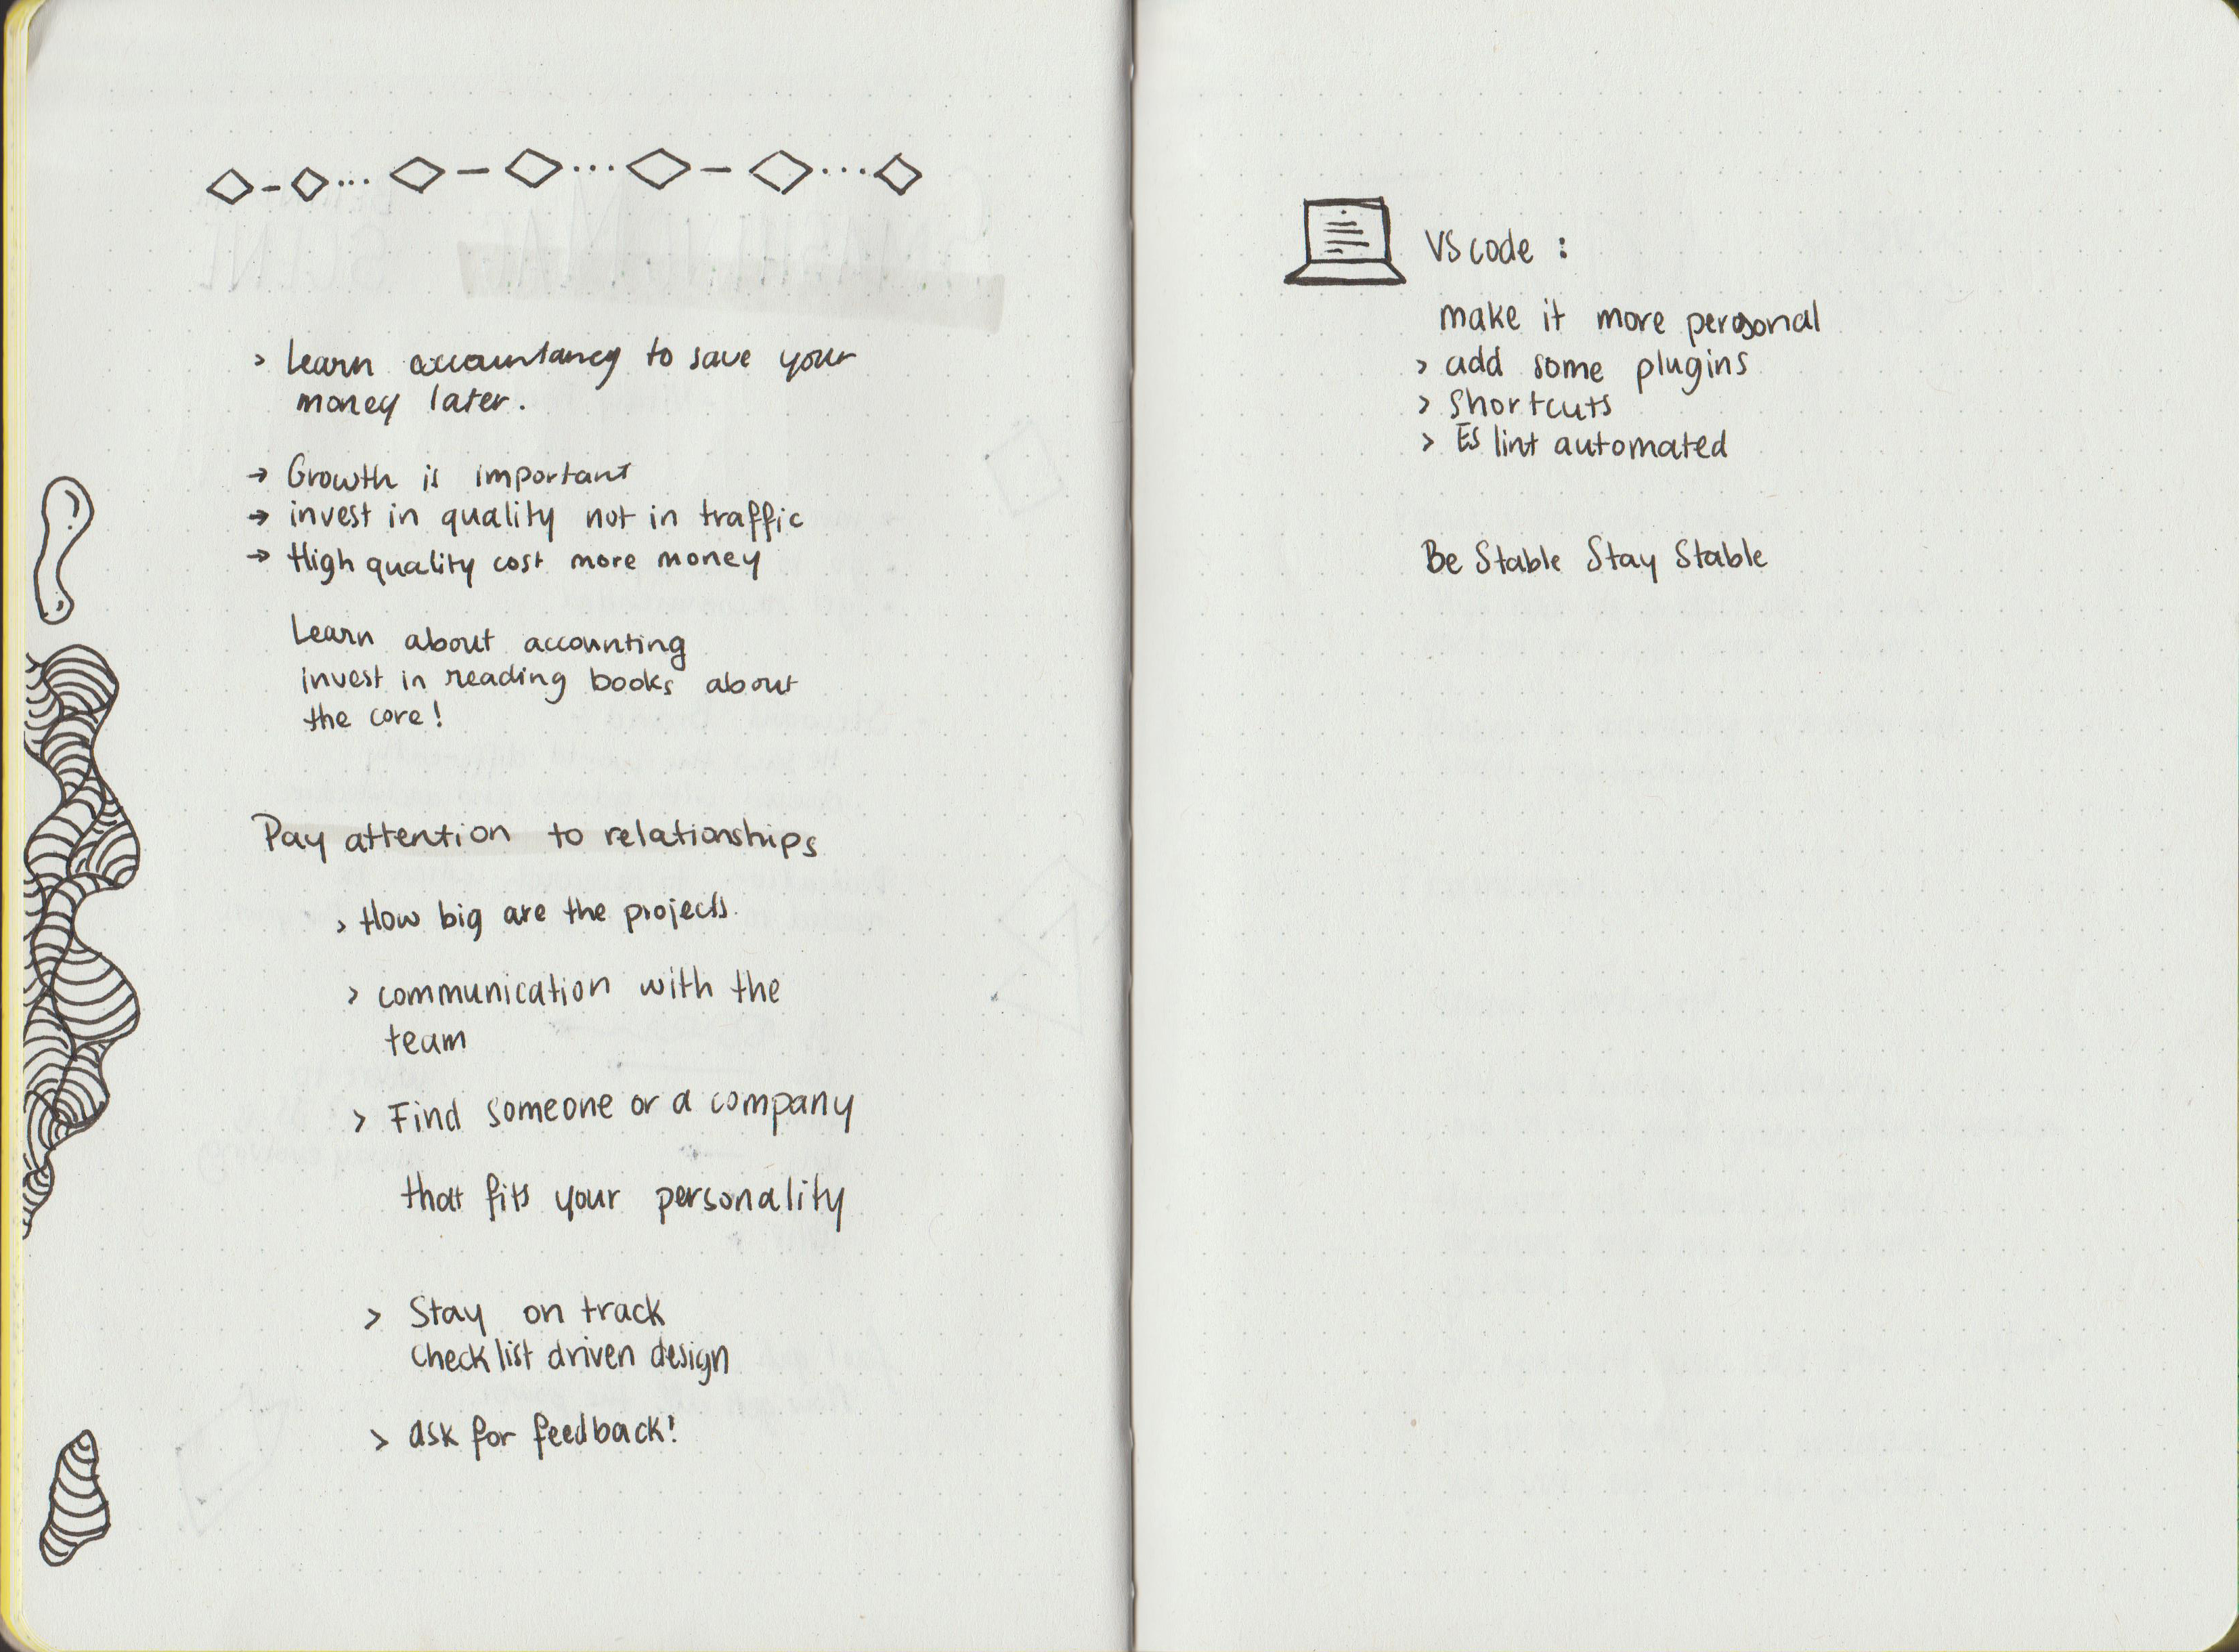 > Learn accountancy to save your
money later.
→ Growth is important
→ invest in quality not in traffic
→ High quality cost more money
Learn about accounting
invest in reading books about
the core!
Pay attention to relationships
> How big are the projects.
> communication with the
team
> Find someone or a company
that fits your personality
> Stay on track
checklist driven design
> ask for feedback!
VS code :
make it more personal
> add some plugins
> Shortcuts
> ES lint automated
Be Stable Stay Stable